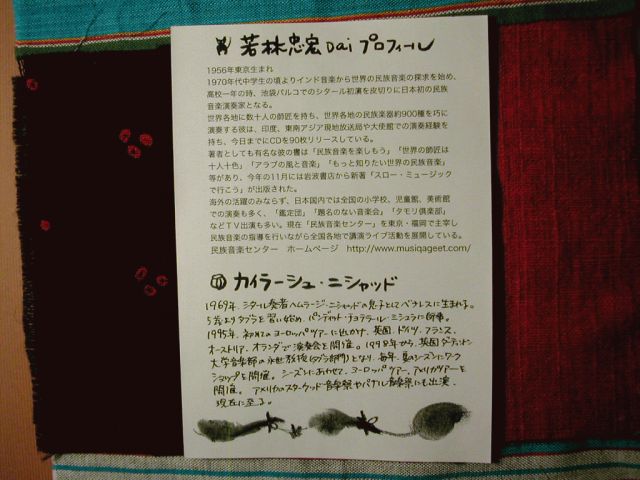 若林忠宏 Dai プロフィール
1956年東京生まれ
1970年代中学生の頃よりインド音楽から世界の民族音楽の探求を始め、
高校一年の時、池袋パルコでのシタール初演を皮切りに日本初の民族
音楽演奏家となる。
世界各地に数十人の師匠を持ち、世界各地の民族楽器約900種を巧に
演奏する彼は、印度、東南アジア現地放送局や大使館での演奏経験を
持ち、今日までにCDを90枚リリースしている。
著者としても有名な彼の書は「民族音楽を楽しもう」「世界の師匠は
十人十色」「アラブの風と音楽」「もっと知りたい世界の民族音楽」
等があり、今年の11月には岩波書店から新著「スロー・ミュージック
で行こう」が出版された。
海外の活躍のみならず、日本国内では全国の小学校、児童館、美術館
での演奏も多く、「鑑定団」「題名のない音楽会」「タモリ倶楽部」
などTV出演も多い。現在「民族音楽センター」を東京・福岡で主宰し
民族音楽の指導を行いながら全国各地で講演ライブ活動を展開している。
民族音楽センター ホームページ http://www.musiqageet.com/
カイラーシュ・ニシャッド
1969年、シタール奏者ヘムラージ・ニシャッドの息子としてベナレスに生まれる。
5歳よりタブラを習い始め、パンディット・チョテラール・ミシュラに師事。
1995年、初めてのヨーロッパツアーに出かけ、英国、ドイツ、フランス、
オーストリア、オランダで演奏会を開催。1998年から、英国ダーティントン
大学音楽部の永世教授(タブラ部門)となり、毎年、夏のシーズンにワーク
ショップを開催。シーズンにあわせて、ヨーロッパツアー、アメリカツアーを
開催。アメリカのスターウッド音楽祭やバナル音楽祭にも出演、
現在に至る。